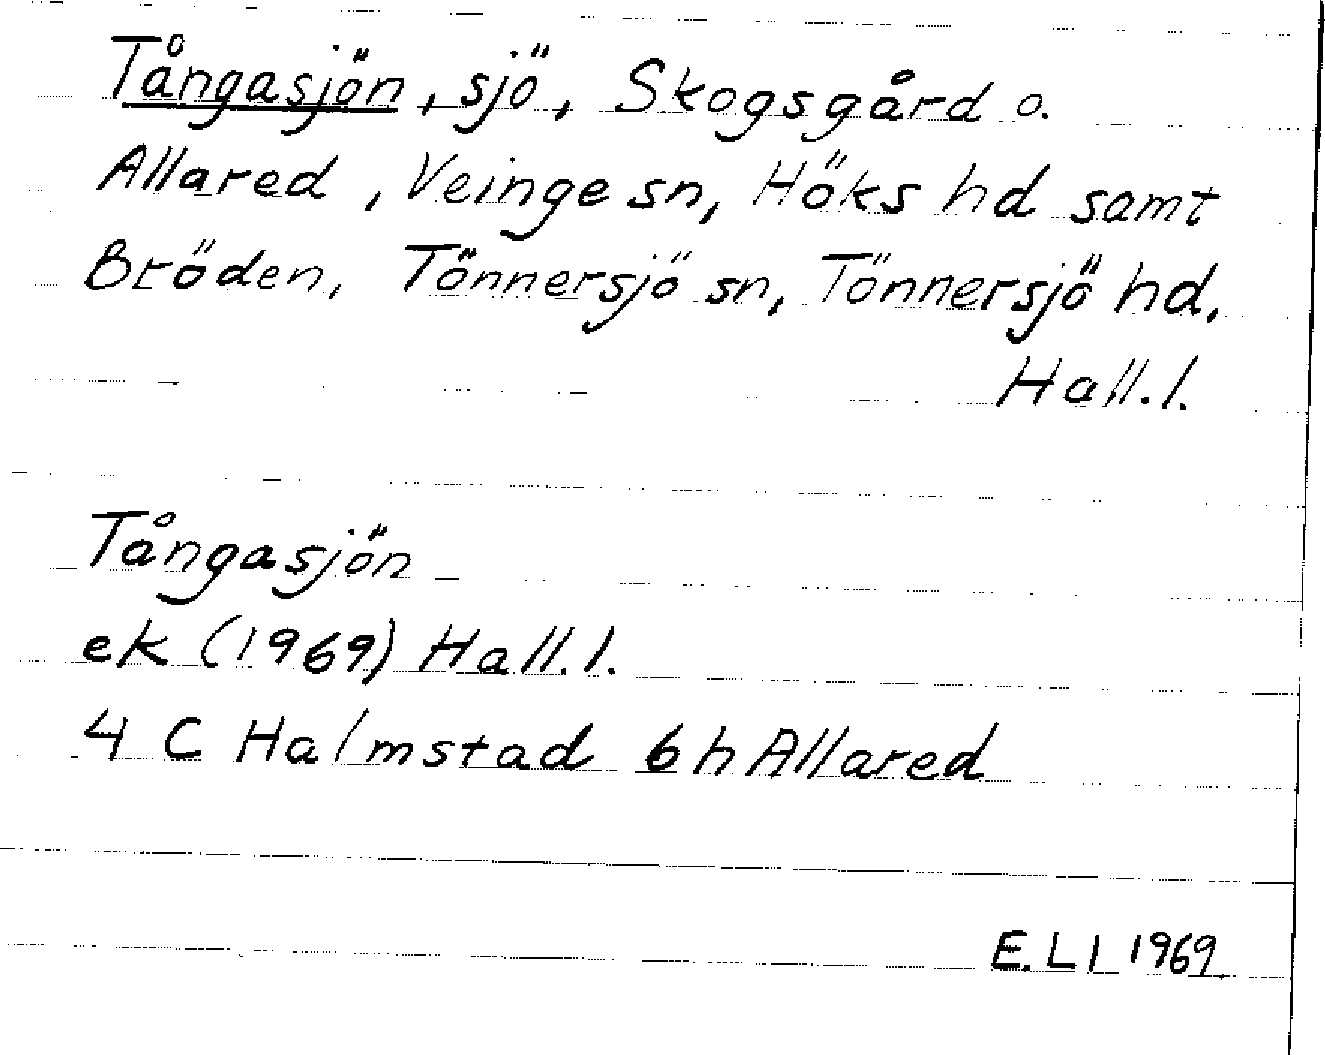 Tångasjön, sjö, Skogsgård o.
Allared, Veinge sn, Höks hd samt
Bröden, Tönnersjö sn, Tönnersjö hd,
Hall.l.
Tångasjön
ek (1969) Hall.l.
4 C Halmstad 6h Allared
E. Ll 1969